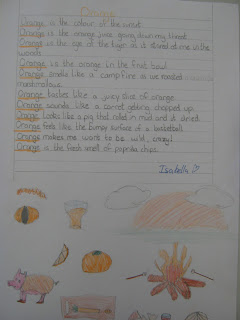 Orange
Orange is the colour of the sunset.
Orange is the orange juice going down my throat.
Orange is the eye of the tiger as it stared at me in the
woods.
Orange is the orange in the fruit bowl.
Orange smells like a campfire as we roasted
marshmallows.
Orange tastes like a juicy slice of orange.
Orange sounds like a carrot getting chopped up.
Orange looks like a pig that rolled in mud and it dried.
Orange feels like the bumpy surface of a basketball.
Orange makes me want to be wild, crazy!
Orange is the fresh smell of paprika chips.
Isabella